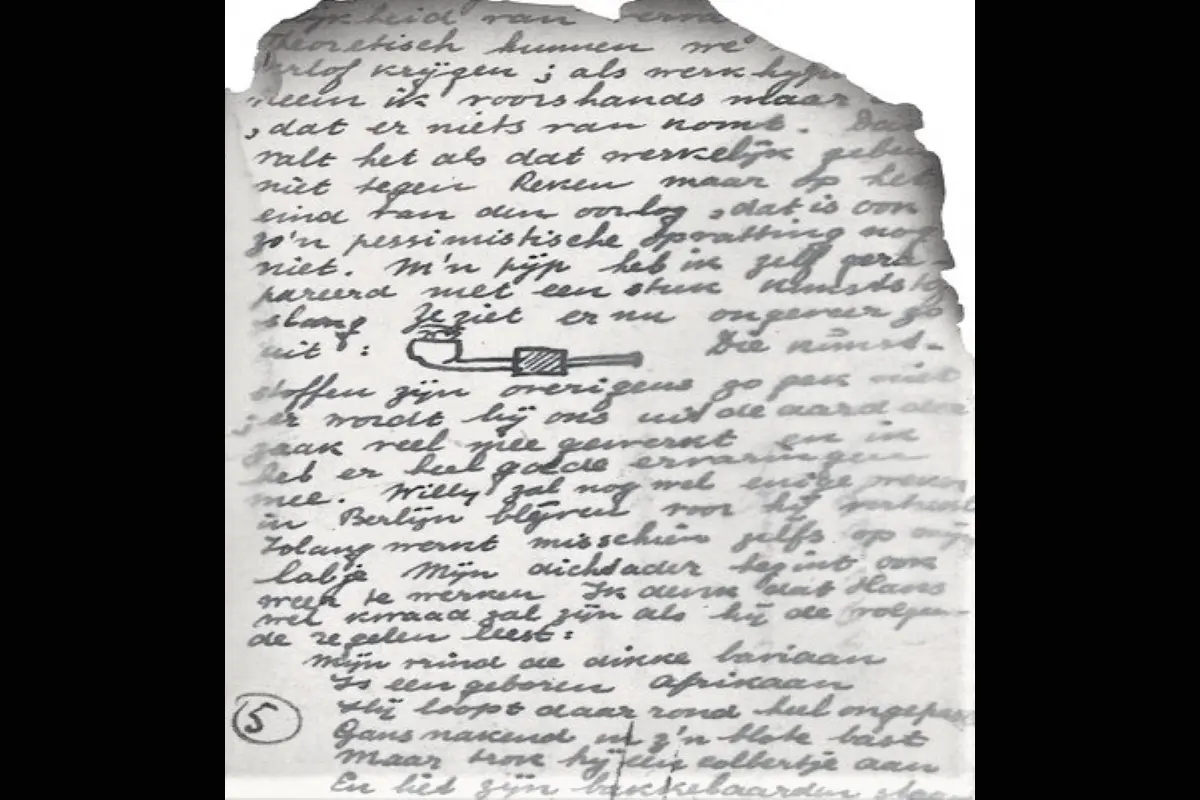 ijkheid van erva
Theoretisch kunnen we
erlof krijgen ; als werkhypo
neem ik voorshands maar
, dat er niets van komt. Dan
valt het als dat werkelijk gebeu
niet tegen Reken maar op het
eind van den oorlog , dat is ook
zo'n pessimistische opvatting nog
niet. M'n pijp heb ik zelf gere-
pareerd met een stuk kunststof
slang Ze ziet er nu ongeveer zo
uit : Die kunst-
stoffen zijn overigens zo gek niet
; er wordt bij ons uit de aard der
zaak veel mee gewerkt en ik
heb er heel goede ervaringen
mee. Willy zal nog wel enige weken
in Berlijn blijven voor hij vertrekt
Zolang werkt misschien zelfs op mijn
labje Mijn dichtader begint ook
weer te werken Ik denk dat Hans
wel kwaad zal zijn als hij de volgen-
de regelen leest:
Mijn vrind de dikke baviaan
Is een geboren Afrikaan
Hij loopt daar rond heel ongepast
Gans nakend in z'n blote bast
Maar trok hij een colbertje aan
En liet zijn bakkebaarden staan
5